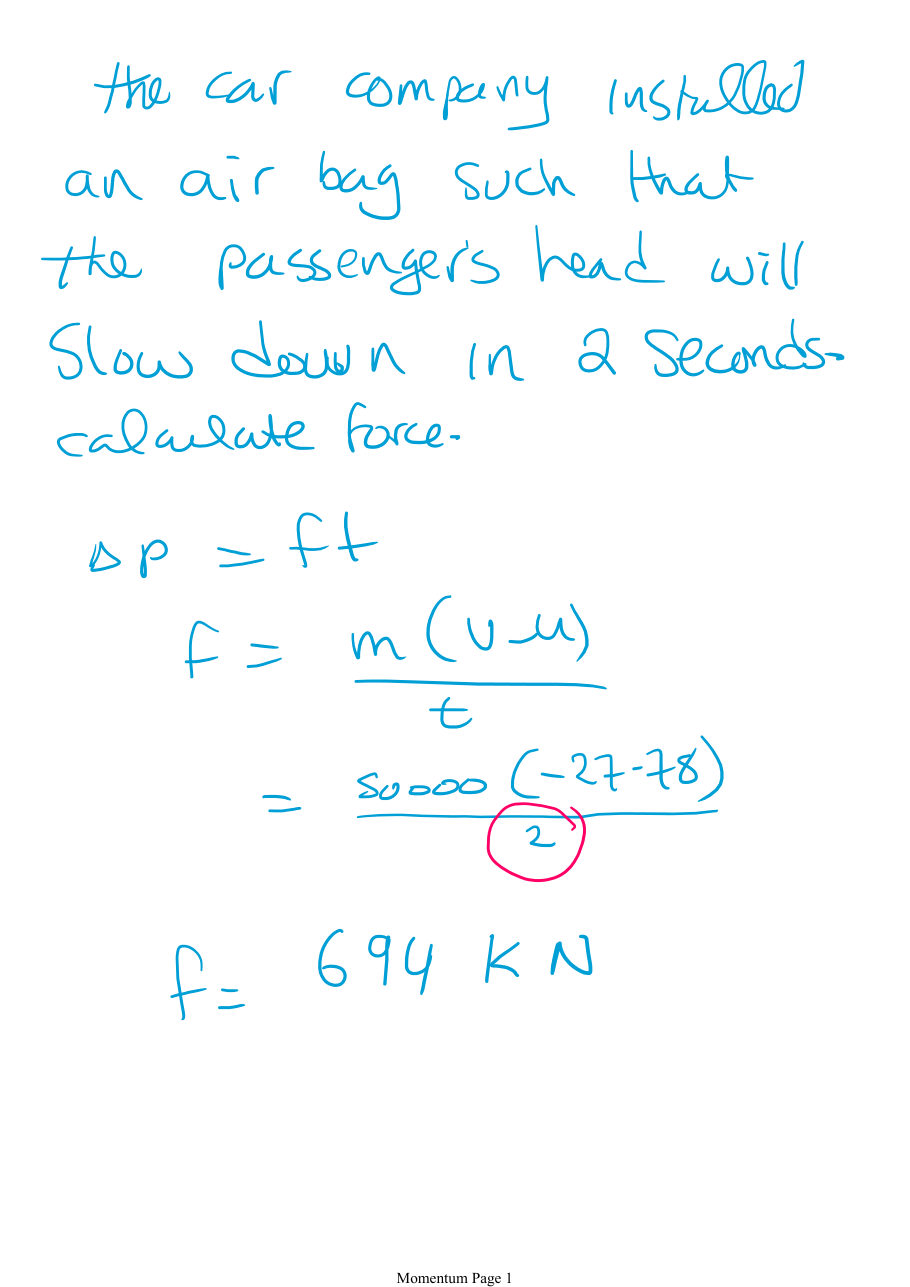 the car company installed
an air bag such that
the passenger's head will
slow down in 2 seconds.
calculate force.
Δp = ft
f = m(v-u)
t
= 50000 (-27-78)
2
f = 694 KN
Momentum Page 1